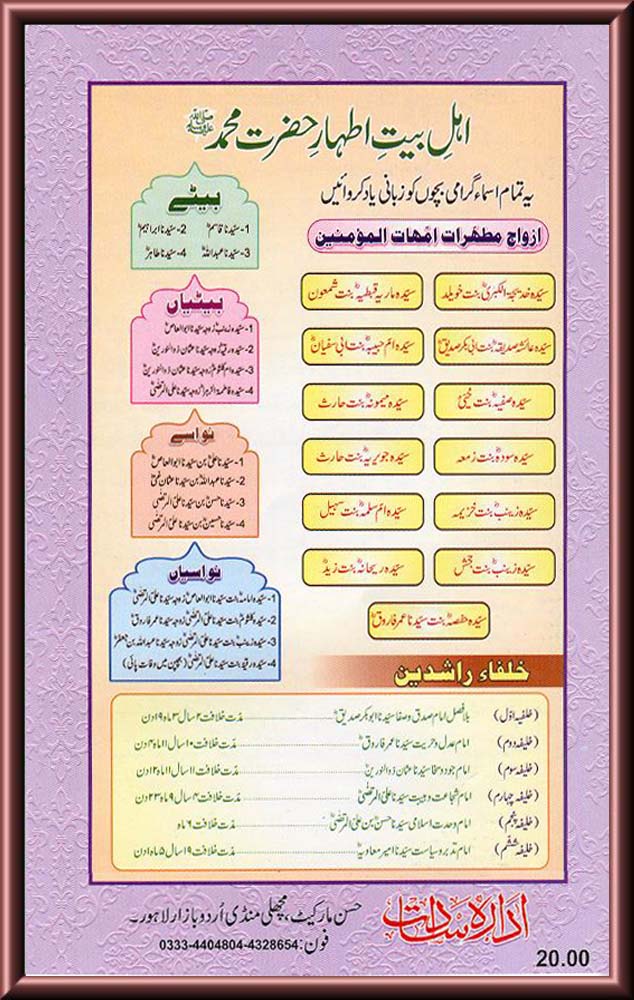 اہلِ بیتِ اطہارِ حضرت محمد ﷺ
یہ تمام اسماء گرامی بچوں کو زبانی یاد کروائیں
ازواج مطہرات امہات المؤمنین
سیّدہ خدیجۃ الکبریٰؓ بنت خویلد
سیّدہ ماریہ قبطیہؓ بنت شمعون
سیّدہ عائشہ صدیقہؓ بنت ابی بکر صدیقؓ
سیّدہ ام حبیبہؓ بنت ابی سفیانؓ
سیّدہ صفیہؓ بنت حُیَیّ
سیّدہ میمونہؓ بنت حارث
سیّدہ سودہؓ بنت زمعہ
سیّدہ جویریہؓ بنت حارث
سیّدہ زینبؓ بنت خزیمہ
سیّدہ ام سلمہؓ بنت سہیل
سیّدہ زینبؓ بنت جحش
سیّدہ ریحانہؓ بنت زیدؓ
سیّدہ حفصہؓ بنت سیّدنا عمر فاروقؓ
بیٹے
1- سیّدنا قاسمؓ 2- سیّدنا ابراہیمؓ
3- سیّدنا عبداللہؓ 4- سیّدنا طاہرؓ
بیٹیاں
1- سیّدہ زینبؓ زوجہ سیّدنا ابوالعاصؓ
2- سیّدہ رقیہؓ زوجہ سیّدنا عثمان ذوالنورینؓ
3- سیّدہ ام کلثومؓ زوجہ سیّدنا عثمان ذوالنورینؓ
4- سیّدہ فاطمۃ الزہراؓ زوجہ سیّدنا علی المرتضیٰؓ
نواسے
1- سیّدنا علیؓ بن سیّدنا ابوالعاصؓ
2- سیّدنا عبداللہؓ بن سیّدنا عثمان غنیؓ
3- سیّدنا حسنؓ بن سیّدنا علی المرتضیٰؓ
4- سیّدنا حسینؓ بن سیّدنا علی المرتضیٰؓ
نواسیاں
1- سیّدہ امامہؓ بنت سیّدنا ابوالعاصؓ زوجہ سیّدنا علی المرتضیٰؓ
2- سیّدہ کلثومؓ بنت سیّدنا علی المرتضیٰؓ زوجہ سیّدنا عمر فاروقؓ
3- سیّدہ زینبؓ بنت سیّدنا علی المرتضیٰؓ زوجہ سیّدنا عبداللہ بن جعفرؓ
4- سیّدہ رقیہؓ بنت سیّدنا علی المرتضیٰؓ (بچپن میں وفات پائی)
خلفاء راشدین
(خلیفہ اوّل) بلافصل امام صدق و صفا سیّدنا ابوبکر صدیقؓ مدت خلافت ۲ سال ۳ ماہ ۱۹ دن
(خلیفہ دوم) امام عدل و حریت سیّدنا عمر فاروقؓ مدت خلافت ۱۰ سال ۱۱ ماہ ۴ دن
(خلیفہ سوم) امام جود و سخا سیّدنا عثمان ذوالنورینؓ مدت خلافت ۱۱ سال ۱۱ ماہ ۱۲ دن
(خلیفہ چہارم) امام شجاعت و ہیبت سیّدنا علی المرتضیٰؓ مدت خلافت ۴ سال ۹ ماہ ۲۳ دن
(خلیفہ پنجم) امام وحدت اسلامی سیّدنا حسنؓ بن علی المرتضیٰؓ مدت خلافت ۶ ماہ
(خلیفہ ششم) امام تدبر و سیاست سیّدنا امیر معاویہؓ مدت خلافت ۱۹ سال ۵ ماہ ۱ دن
ادارہ سادات
حسن مارکیٹ، مچھلی منڈی اُردو بازار لاہور۔
فون: 0333-4404804-4328654
20.00